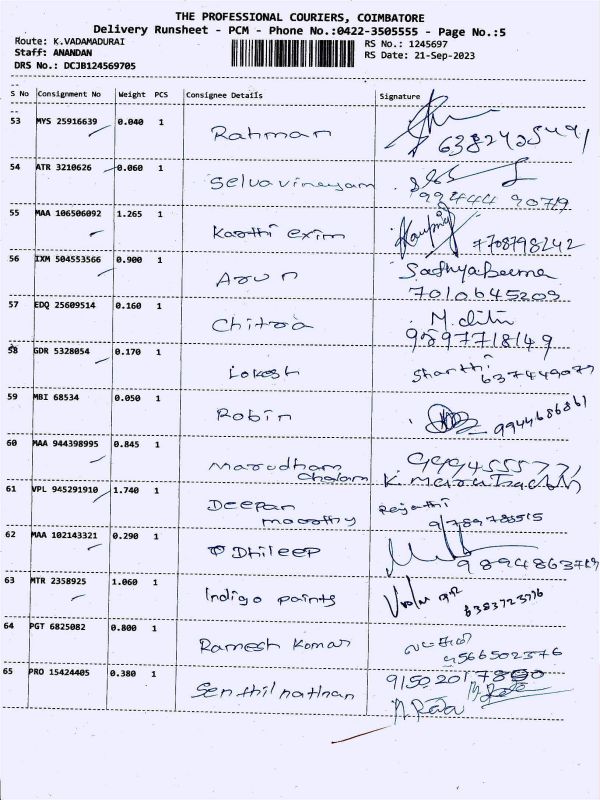 THE PROFESSIONAL COURIERS, COIMBATORE
Delivery Runsheet - PCM - Phone No.:0422-3505555 - Page No.:5
Route: K.VADAMADURAI
Staff: ANANDAN
DRS No.: DCJB124569705
RS No.: 1245697
RS Date: 21-Sep-2023
S No Consignment No Weight PCS Consignee Details Signature
53 MYS 25916639 0.040 1 Rahman
54 ATR 3210626 0.060 1 Selvavinayam
99444 90719
55 MAA 106506092 1.265 1 Karthi exim 7708798242
56 IXM 504553566 0.900 1 Arun
7010645209
57 EDQ 25609514 0.160 1 Chitra
9597718149
58 GDR 5328054 0.170 1 Lokesh Shanthi
59 MBI 68534 0.050 1 Robin 9944686861
60 MAA 944398995 0.845 1 Marudham
chalam
61 VPL 945291910 1.740 1 Deepan
moorthy 9789783515
62 MAA 102143321 0.290 1 Dhileep
63 MTR 2358925 1.060 1 Indigo paints
64 PGT 6825082 0.800 1 Ramesh Kumar
9566502376
65 PRO 15424405 0.380 1 Senthilnathan